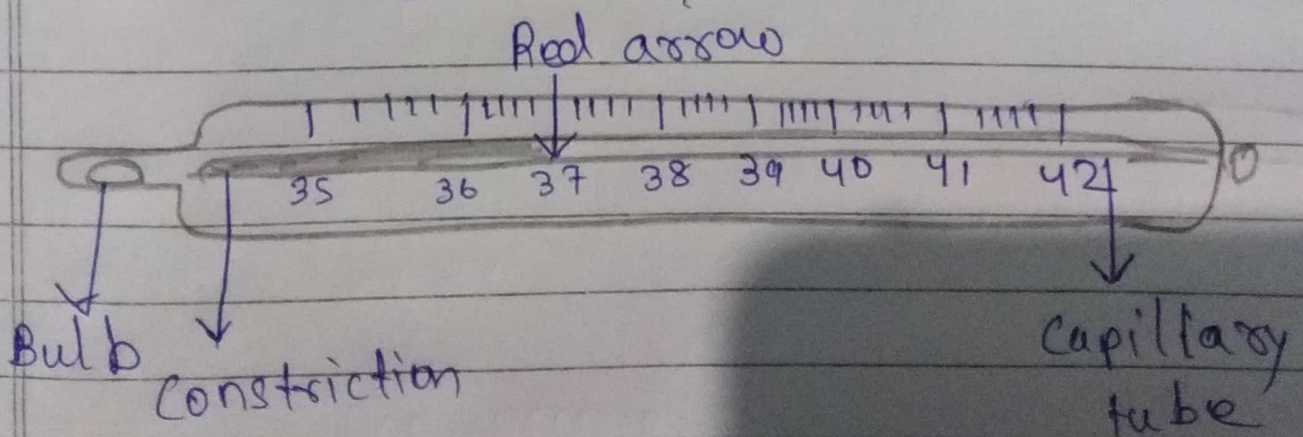 Red arrow
35 36 37 38 39 40 41 42
Bulb
Constriction
Capillary
tube